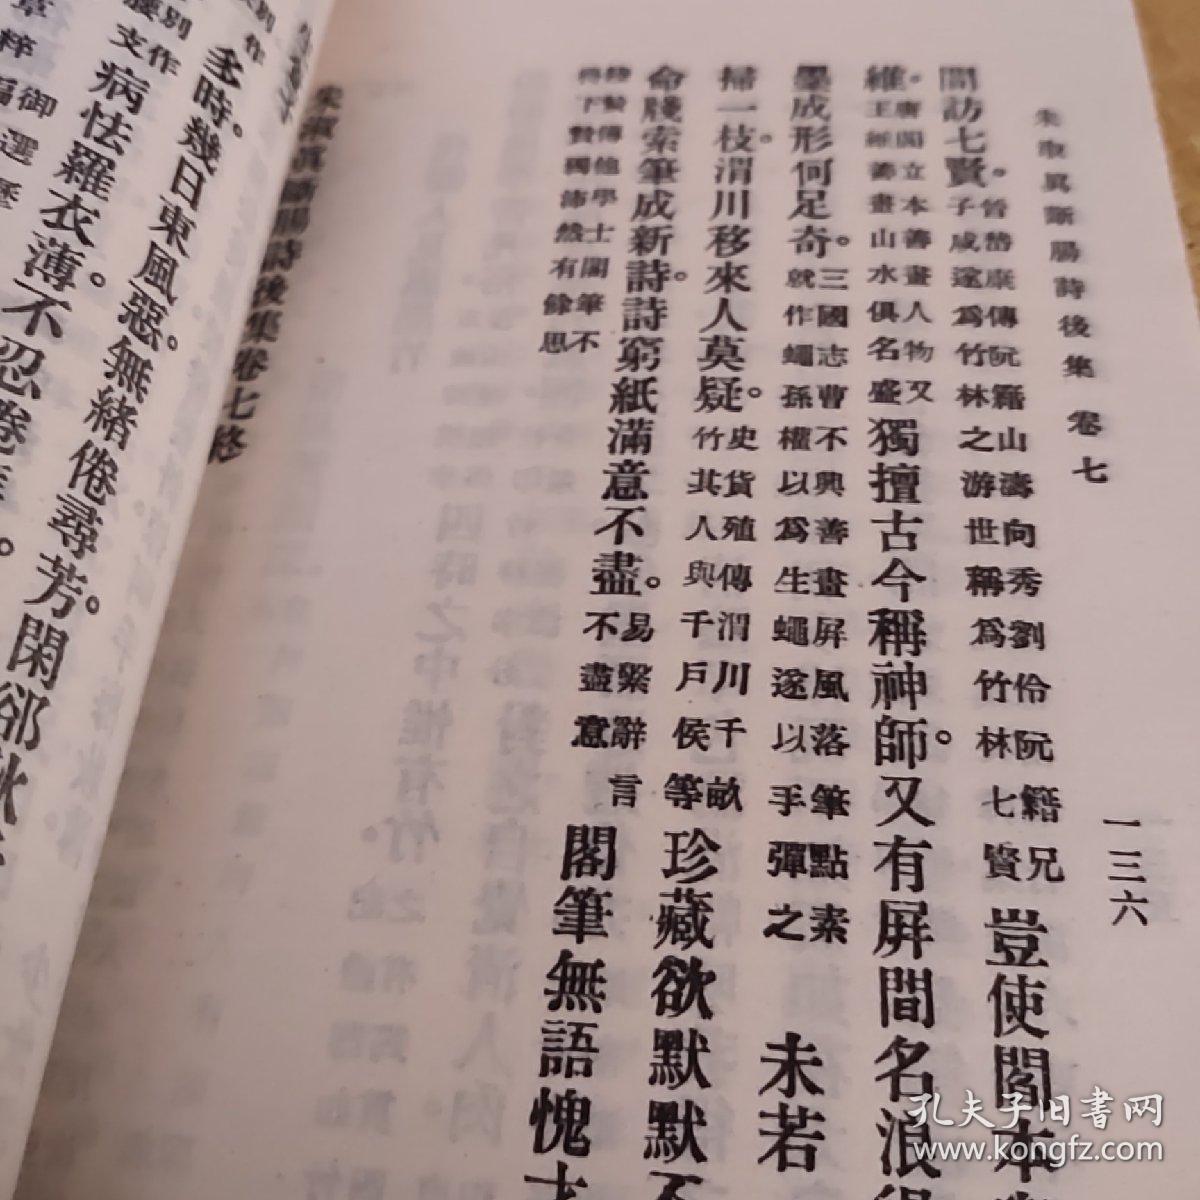 朱淑眞斷腸詩後集 卷七
一三六
間訪七賢。晉嵇康傳阮籍山濤向秀劉伶阮籍兄子咸遂爲竹林之游世稱爲竹林七賢 豈使閻本
維。唐閻立本善畫人物又王維善畫山水俱名盛 獨擅古今稱神師。又有屏間名浪得
墨成形何足奇。三國志曹不興善畫屏風落筆點素就作蠅孫權以爲生蠅遂以手彈之 未若
掃一枝。渭川移來人莫疑。史貨殖傳渭川千畝竹其人與千戶侯等 珍藏欲默默不
命牋索筆成新詩。詩窮紙滿意不盡。易繫辭言不盡意 閣筆無語愧才
他學士閣筆不下贊獨沛然有餘思
朱淑眞斷腸詩後集卷七終
多時。幾日東風惡。無緒倦尋芳。閑卻秋
病怯羅衣薄。不忍卷
別作
御選歷
孔夫子旧书网
www.kongfz.com